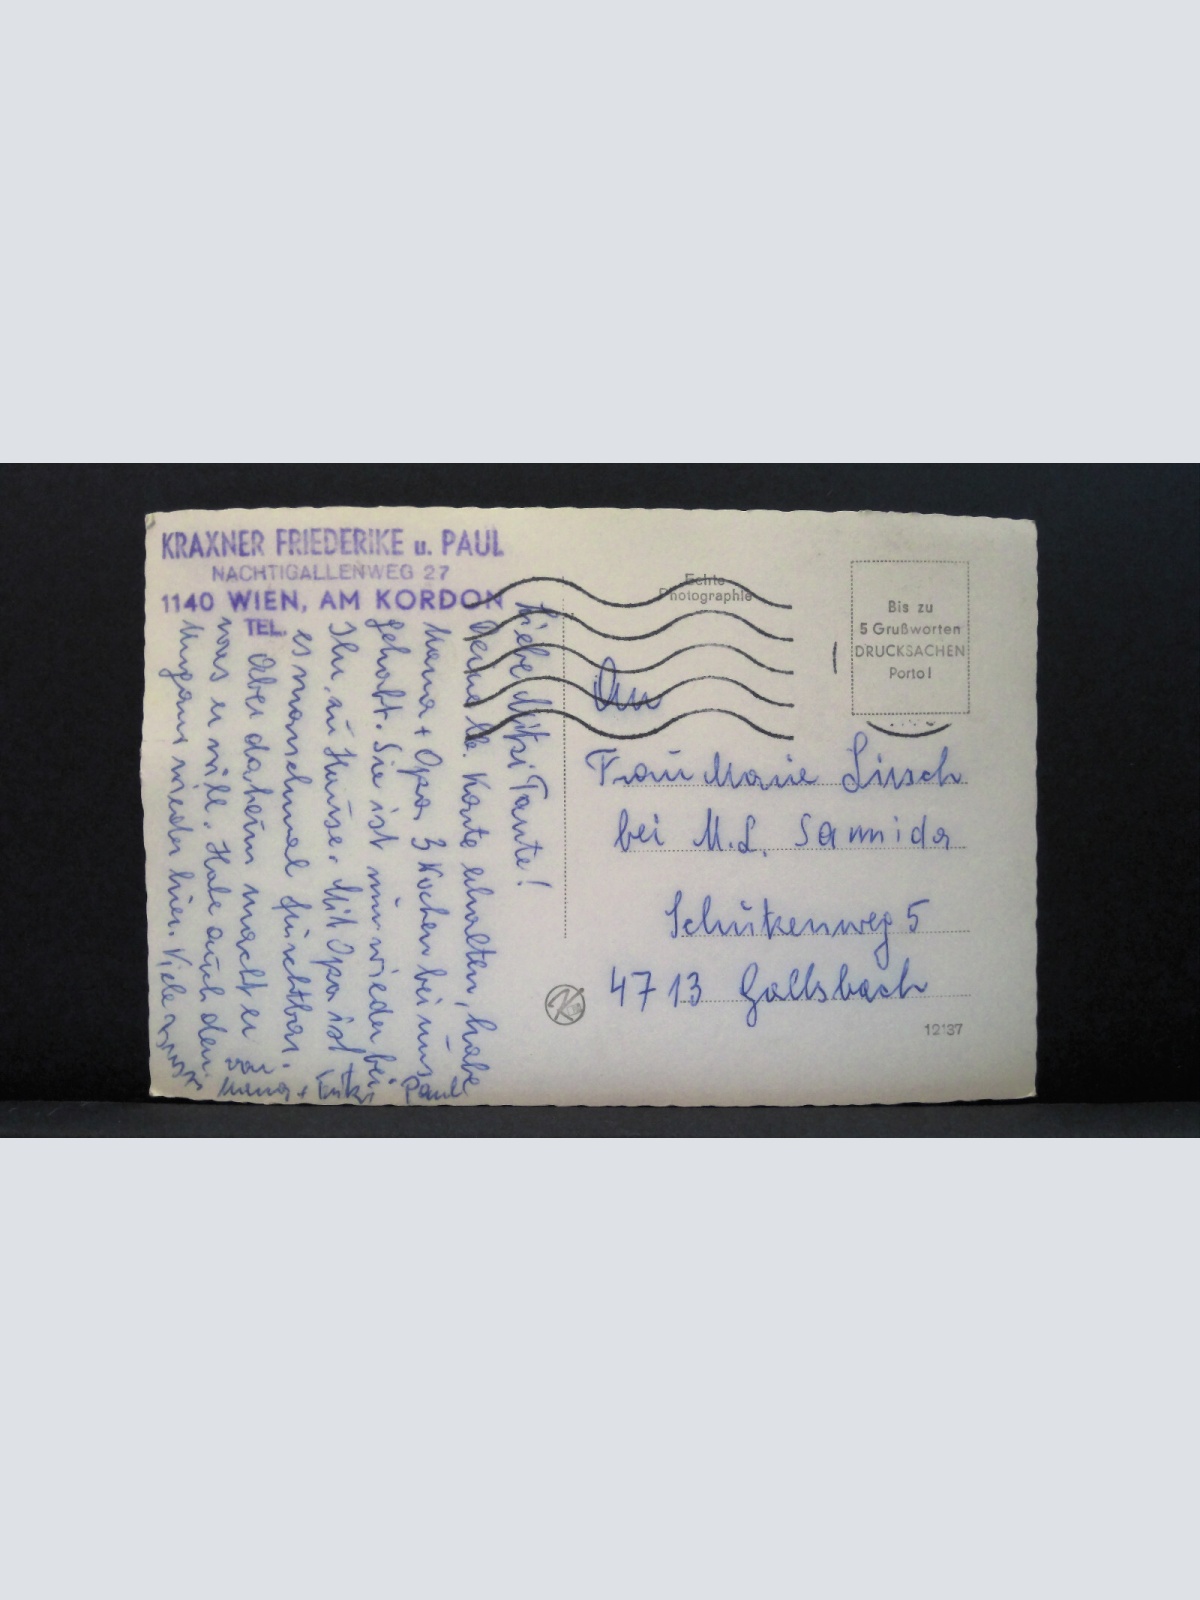 KRAXNER FRIEDERIKE u. PAUL
NACHTIGALLENWEG 27
1140 WIEN, AM KORDON
TEL.
Liebe Mitzi Tante!
Deine lb. Karte erhalten, habe
Mama + Opa 3 Wochen bei uns
gehabt. Sie ist nun wieder bei
Ihr, zu Hause. Mit Opa ist
es manchmal furchtbar.
Aber daheim macht er
was er will. Habe auch den
wieder hier. Viele
von
Mama + Fritzi Pauli
Echte
Photographie
Bis zu
5 Grußworten
DRUCKSACHEN
Porto!
An
Frau Marie Lirsch
bei M. L. Samida
Schützenweg 5
4713 Gallsbach
12137